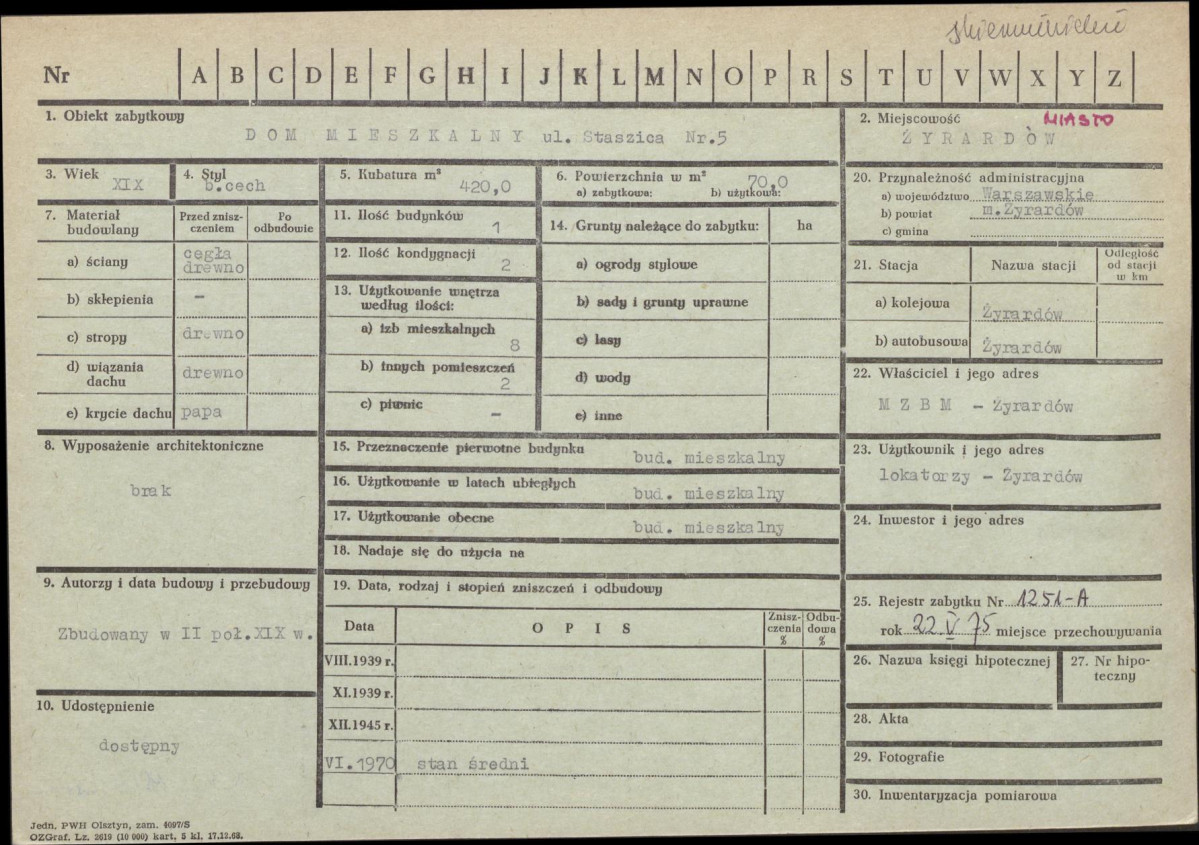 skierniewickie
Nr A B C D E F G H I J K L M N O P R S T U V W X Y Z
1. Obiekt zabytkowy
DOM MIESZKALNY ul. Staszica Nr.5
2. Miejscowość MIASTO
ŻYRARDÓW
3. Wiek
XIX
4. Styl
b.cech
5. Kubatura m³
420,0
6. Powierzchnia w m²
70,0
a) zabytkowa: b) użytkowa:
20. Przynależność administracyjna
a) województwo Warszawskie
b) powiat m.Żyrardów
c) gmina
7. Materiał budowlany
Przed zniszczeniem
Po odbudowie
a) ściany
cegła
drewno
b) sklepienia –
c) stropy drewno
d) wiązania dachu drewno
e) krycie dachu papa
11. Ilość budynków
1
12. Ilość kondygnacji
2
13. Użytkowanie wnętrza
według ilości:
a) izb mieszkalnych
8
b) innych pomieszczeń
2
c) piwnic
–
14. Grunty należące do zabytku: ha
a) ogrody stylowe
b) sady i grunty uprawne
c) lasy
d) wody
e) inne
21. Stacja Nazwa stacji
Odległość
od stacji
w km
a) kolejowa Żyrardów
b) autobusowa Żyrardów
22. Właściciel i jego adres
M Z B M – Żyrardów
8. Wyposażenie architektoniczne
brak
15. Przeznaczenie pierwotne budynku
bud. mieszkalny
16. Użytkowanie w latach ubiegłych
bud. mieszkalny
17. Użytkowanie obecne
bud. mieszkalny
18. Nadaje się do użycia na
23. Użytkownik i jego adres
lokatorzy – Żyrardów
24. Inwestor i jego adres
9. Autorzy i data budowy i przebudowy
Zbudowany w II poł.XIX w.
19. Data, rodzaj i stopień zniszczeń i odbudowy
Data OPIS
Zniszczenia %
Odbudowa %
VIII.1939 r.
XI.1939 r.
XII.1945 r.
VI.1970 stan średni
25. Rejestr zabytku Nr 1251-A
rok 22.V 75 miejsce przechowywania
26. Nazwa księgi hipotecznej
27. Nr hipoteczny
10. Udostępnienie
dostępny
28. Akta
29. Fotografie
30. Inwentaryzacja pomiarowa
Jedn. PWH Olsztyn, zam. 4097/S
OZGraf. Lz. 2619 (10 000) kart. 5 kl. 17.12.68.